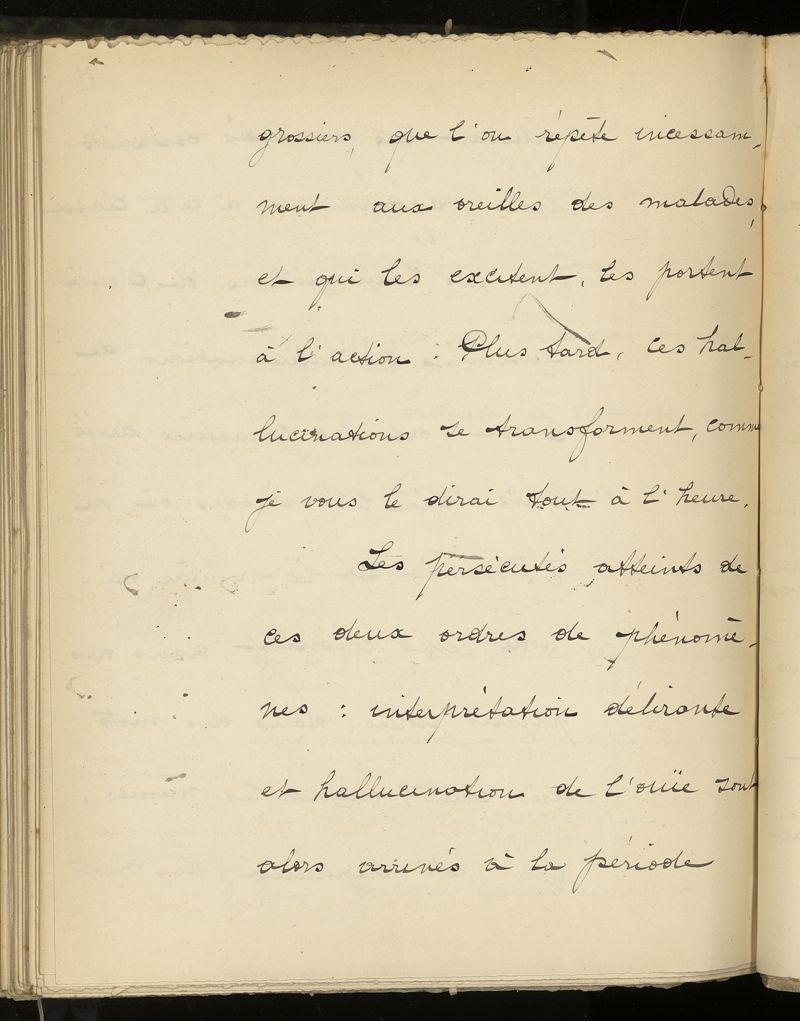 grossiers, que l'on répète incessam-
ment aux oreilles des malades,
et qui les excitent, les portent
à l'action. Plus tard, ces hal-
lucinations se transforment, comme
je vous le dirai tout à l'heure.
Les persécutés atteints de
ces deux ordres de phénomè-
nes : interprétation délirante
et hallucination de l'ouïe sont
alors arrivés à la période